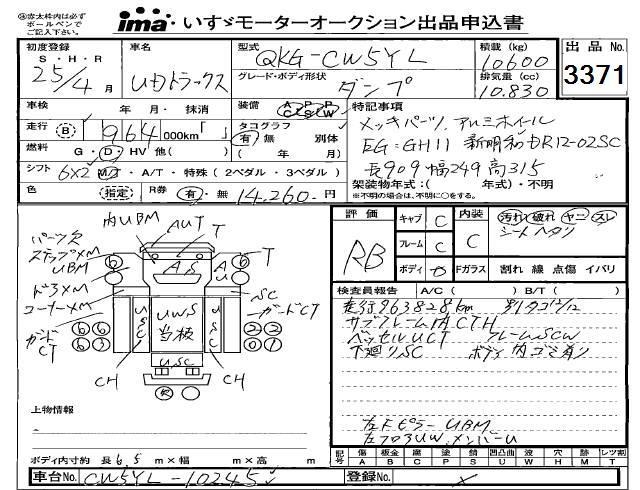 ④赤太枠内は必ず
ボールペンで
ご記入下さい。
ima いすゞモーターオークション出品申込書
初度登録 S・H・R 25/4 月
車名 UDトラックス
型式 QKG-CW5YL
グレード・ボディ形状 ダンプ
積載 (kg) 10600
排気量 (cc) 10.830
出品No. 3371
車検 年 月・抹消
装備 A/C P/S P/W
走行 (B) 964 000km「 」
タコグラフ 有 無 別体 ( 年 月)
燃料 G・D・HV 他( )
シフト 6×2 MT・A/T・特殊 (2ペダル・3ペダル)
色 (指定) R券 有・無 14,260-円
特記事項
メッキパーツ、アルミホイール
EG=GH11 新明和 DR12-02SC
長909 幅249 高315
架装物年式:( 年式)・不明
※不明の場合は、不明に○をする。
評価 RB
キャブ C
フレーム C
ボディ D
内装 C
Fガラス
汚れ 破れ ヤニ スレ
シートヘタリ
割れ 線 点傷 イバリ
検査員報告 A/C( ) B/T( )
走行963828km 割タコ12/12
サブフレーム内CTH
ベッセルUCT フレームSCW
下廻りSC ボディ内ゴミ有り
左Fピラー UBM
左フロアUW、メンバーU
内UBM
AUT
T
T
パーツ欠
ステップXM
UBM
ドアXM
コーナーXM
ガードCT
AS
AU
SC
ガードCT
USC
UWS
当板
USC
USC
CH
CH
上物情報
ボディ内寸約 長6.5 m×幅 m×高 m
記号 傷 板金 腐 塗 錆 凹凸曲 波 穴 跡 レツ割
A B C P S U W H M T
車台No. CW5YL-10245
登録No.